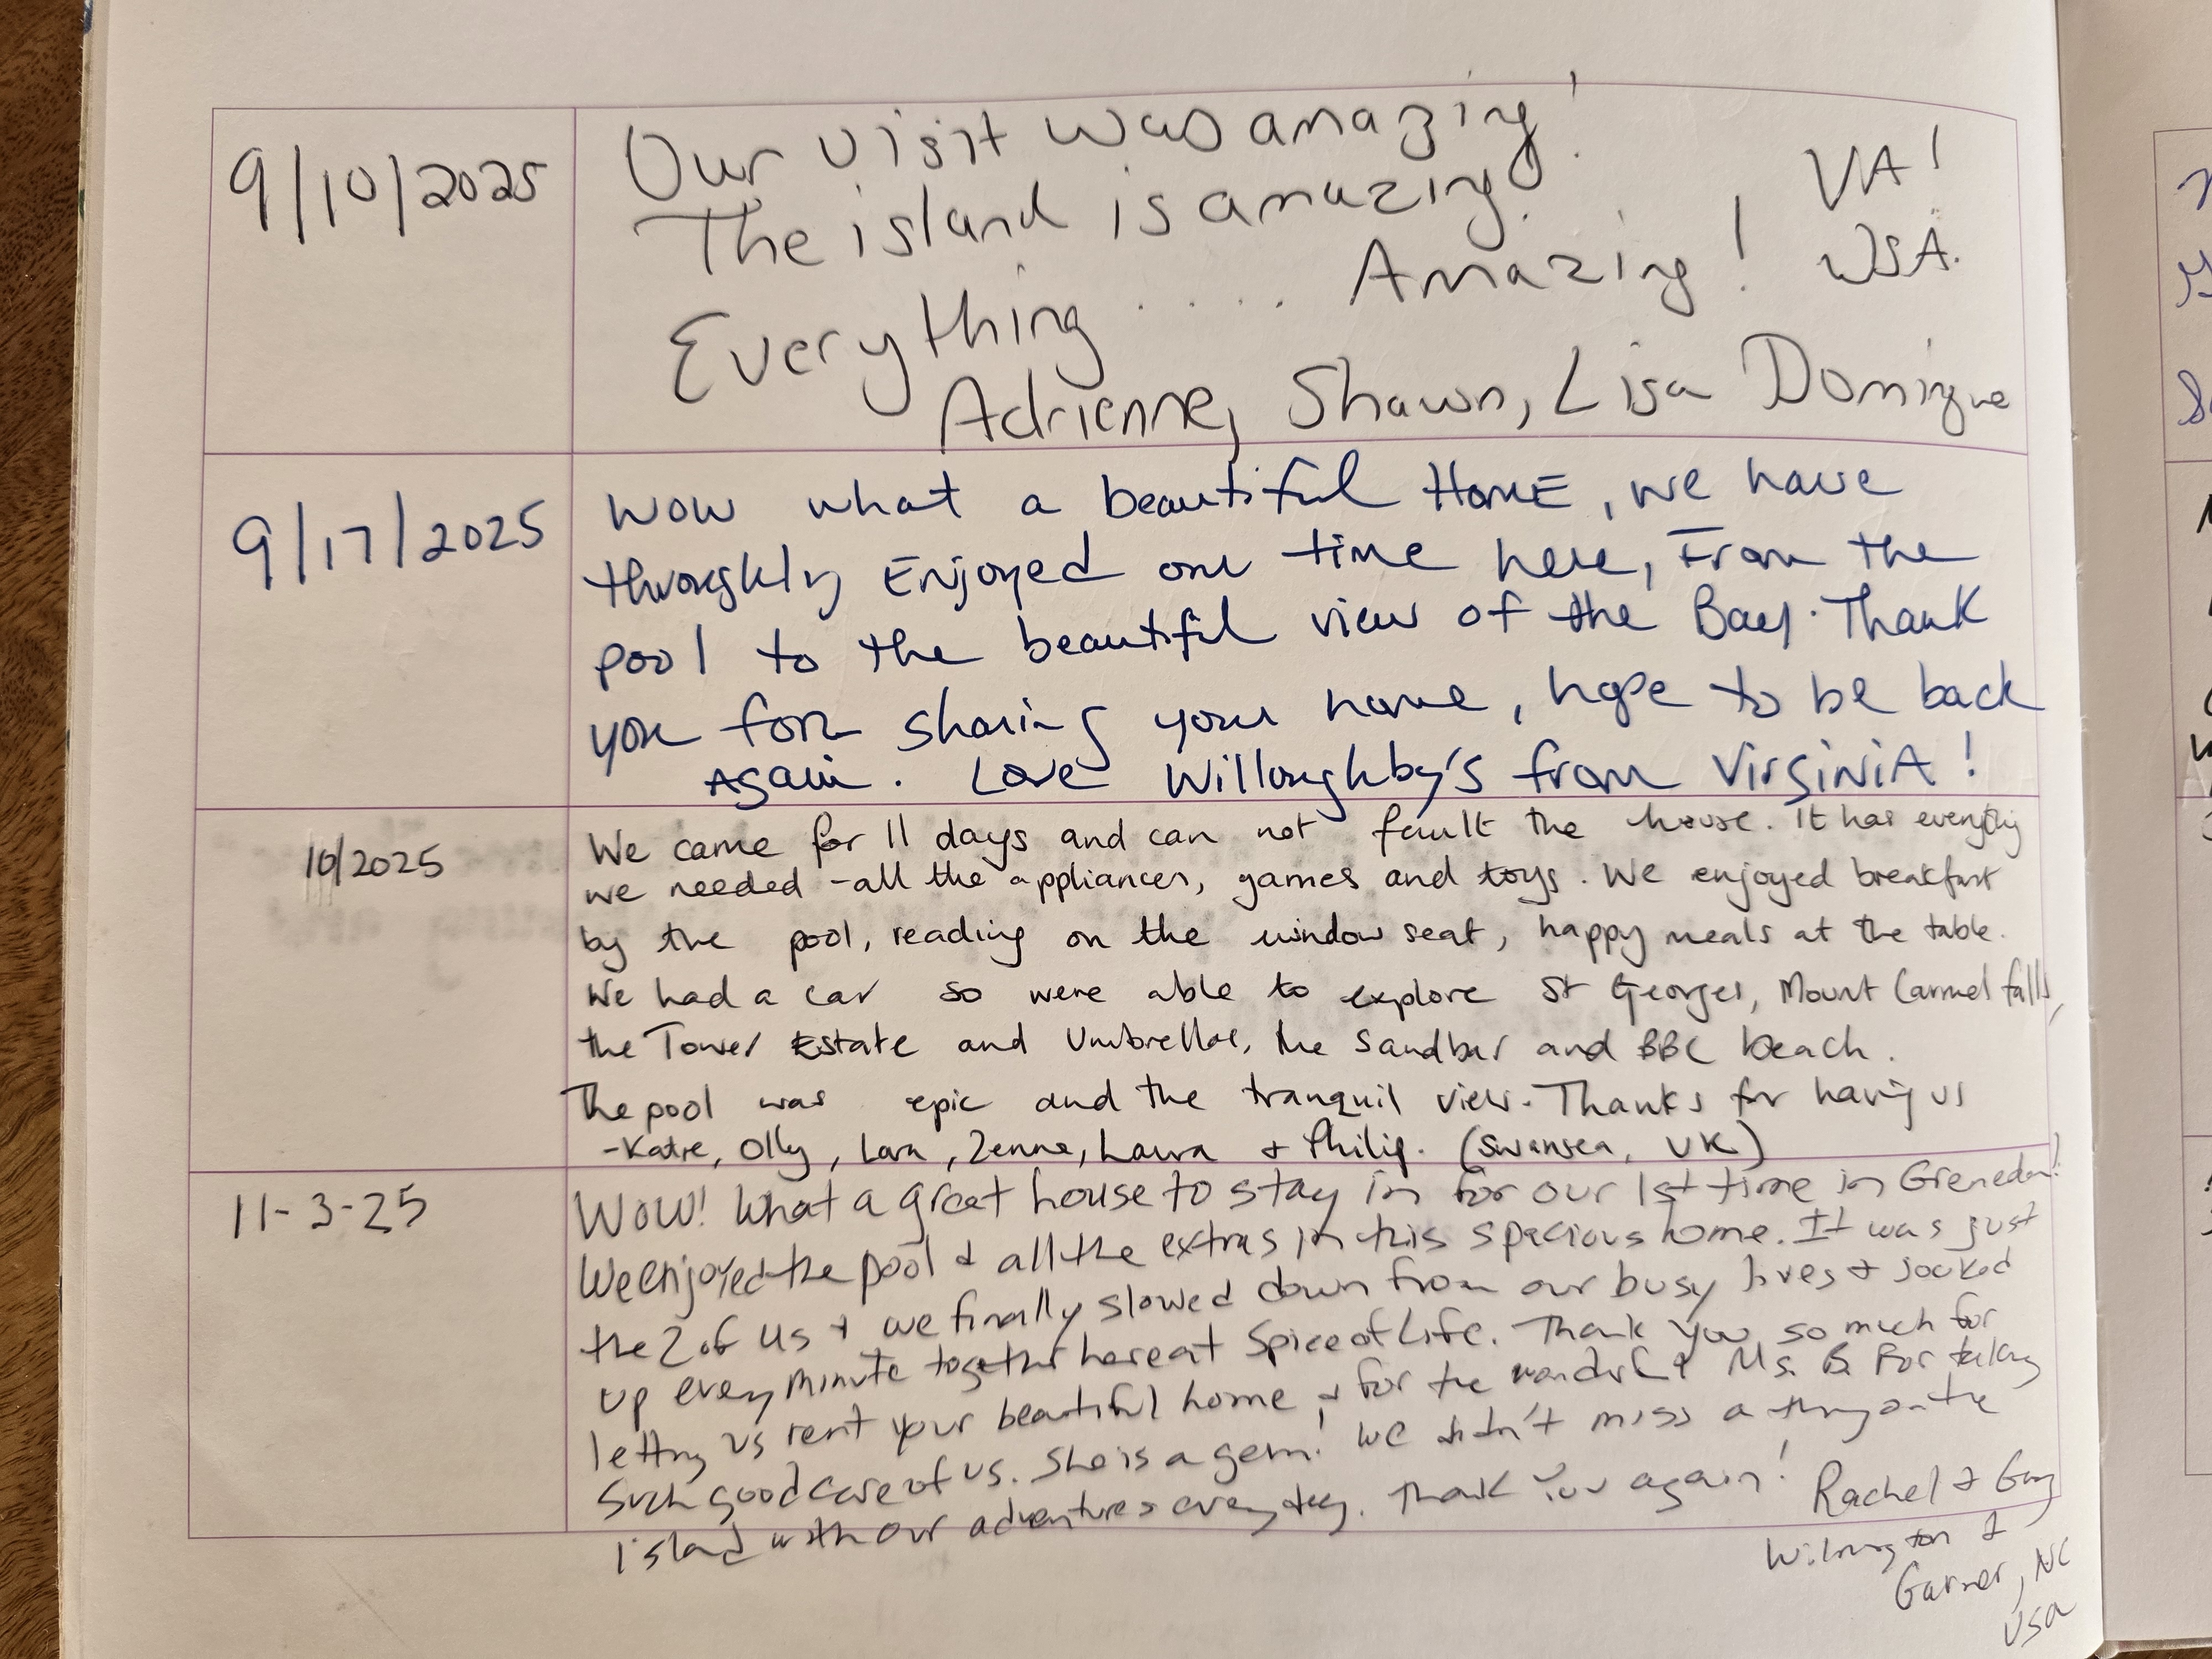 9/10/2025
Our visit was amazing!
The island is amazing!
Everything ..... Amazing! VA!
USA.
Adrienne, Shawn, Lisa Dominque
9/17/2025
Wow what a beautiful HomE, we have
throughly Enjoyed our time here, From the
pool to the beautiful view of the Bay. Thank
you for sharing your home, hope to be back
Again. Love Willoughby's from VirginiA!
10/2025
We came for 11 days and can not fault the house. It has everything
we needed - all the appliances, games and toys. We enjoyed breakfast
by the pool, reading on the window seat, happy meals at the table.
We had a car so were able to explore St Georges, Mount Carmel falls,
the Tower Estate and Umbrellas, the Sandbar and BBC beach.
The pool was epic and the tranquil view. Thanks for having us
- Katie, Olly, Lara, Laura & Philip. (Swansea, UK)
11-3-25
WOW! What a great house to stay in for our 1st time in Greneda!
We enjoyed the pool & all the extras in this spacious home. It was just
the 2 of us & we finally slowed down from our busy lives & soaked
up every minute together here at Spice of Life. Thank you so much for
letting us rent your beautiful home & for the wonderful Ms. B. For taking
such good care of us. She is a gem! We didn't miss a thing on the
island with our adventures every day. Thank You again! Rachel & Gary
Wilmington &
Garner, NC
USA